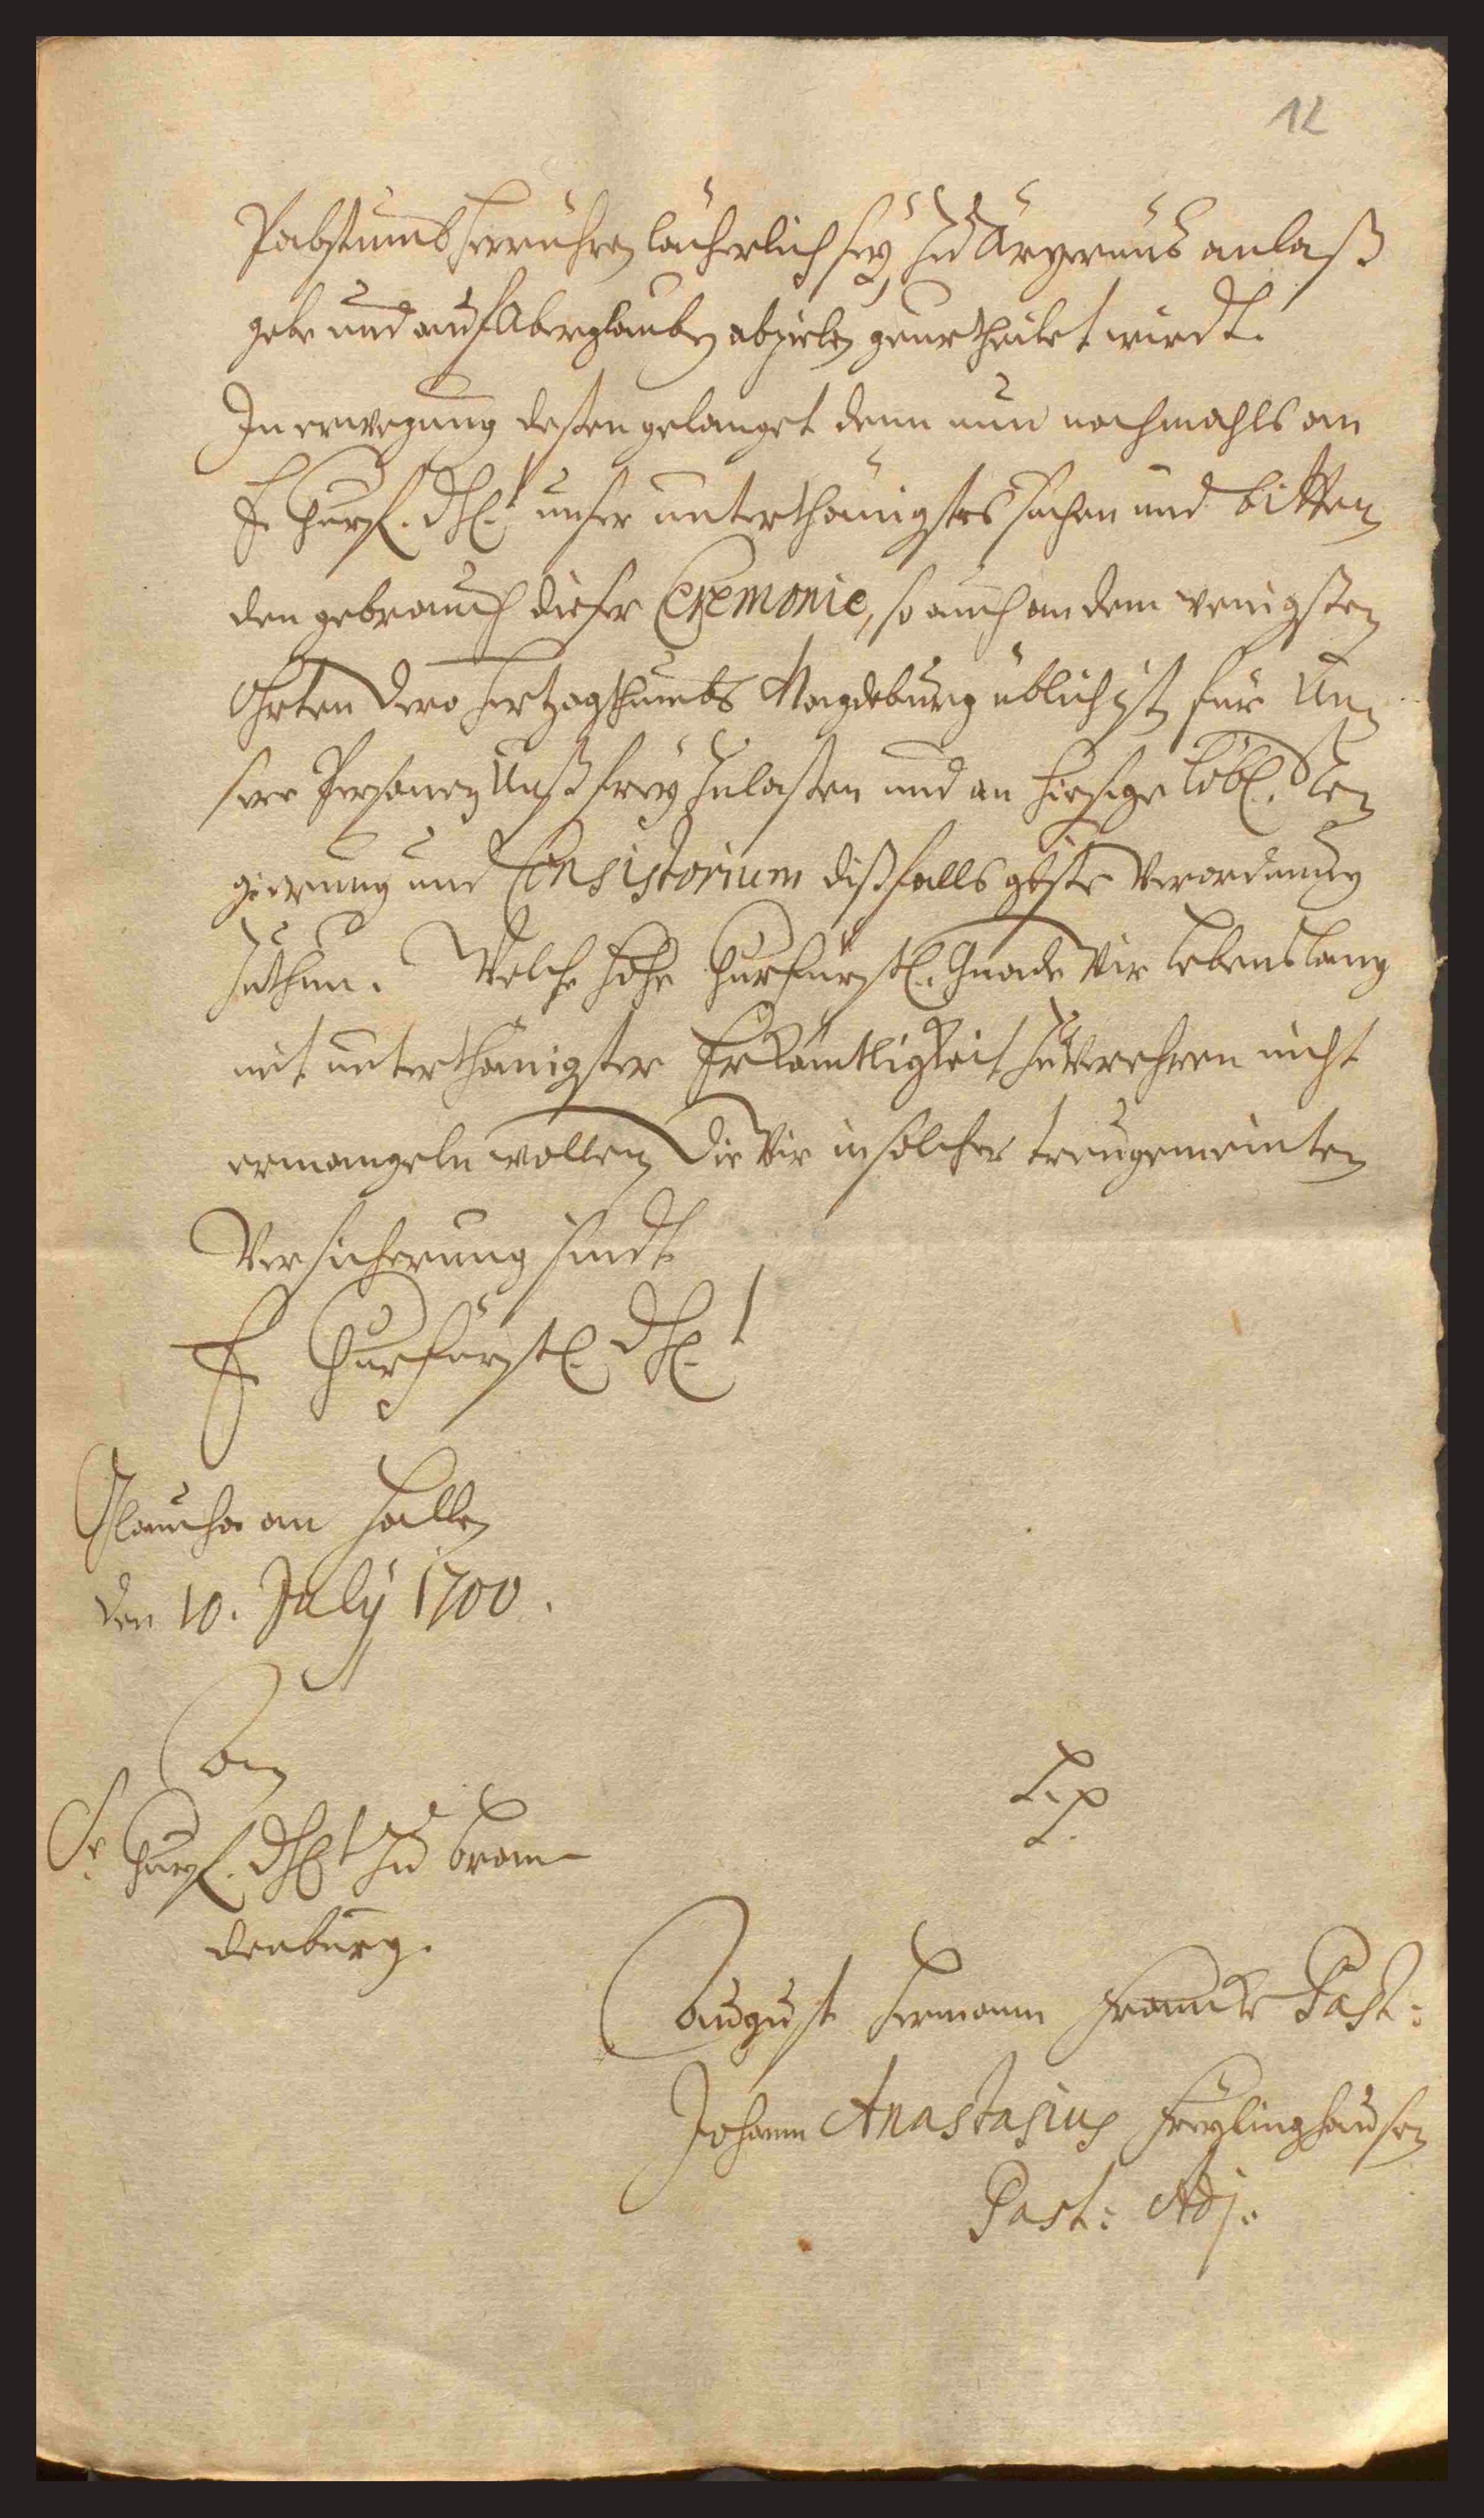 12
Pabstumbs herrühren, lächerlich sey, zu Ärgernüs anlaß
gebe und auf Aberglauben abzielen, geurtheilet wirdt.
In erwegung deßen gelanget denn nun nochmahls an
E. Churf. Dhl.t unser unterthänigstes suchen und bitten
den gebrauch dieser Ceremonie, so auch an dem wenigsten
Ohrten Dero Hertzogthumbs Magdeburg üblich ist, für Un-
sere Personen Unß frey zulaßen und an hiesige Löbl. Re-
gierung und Consistorium dißfalls gdste Verordnung
zuthun. Welche hohe Churfürstl. Gnade Wir Lebenslang
mit unterthänigster Erkäntligkeit zuverehren nicht
ermangeln wollen, die Wir in solcher treugemeinten
Versicherung sindt
E. Churfürstl. Dhl.t
Glaucha an Halle
den 10. July 1700.
An
Sr Churf. Dhlt zu Bran-
denburg.
August Hermann Francke Past:
Johann Anastasius Freylinghausen
Past: Adj.